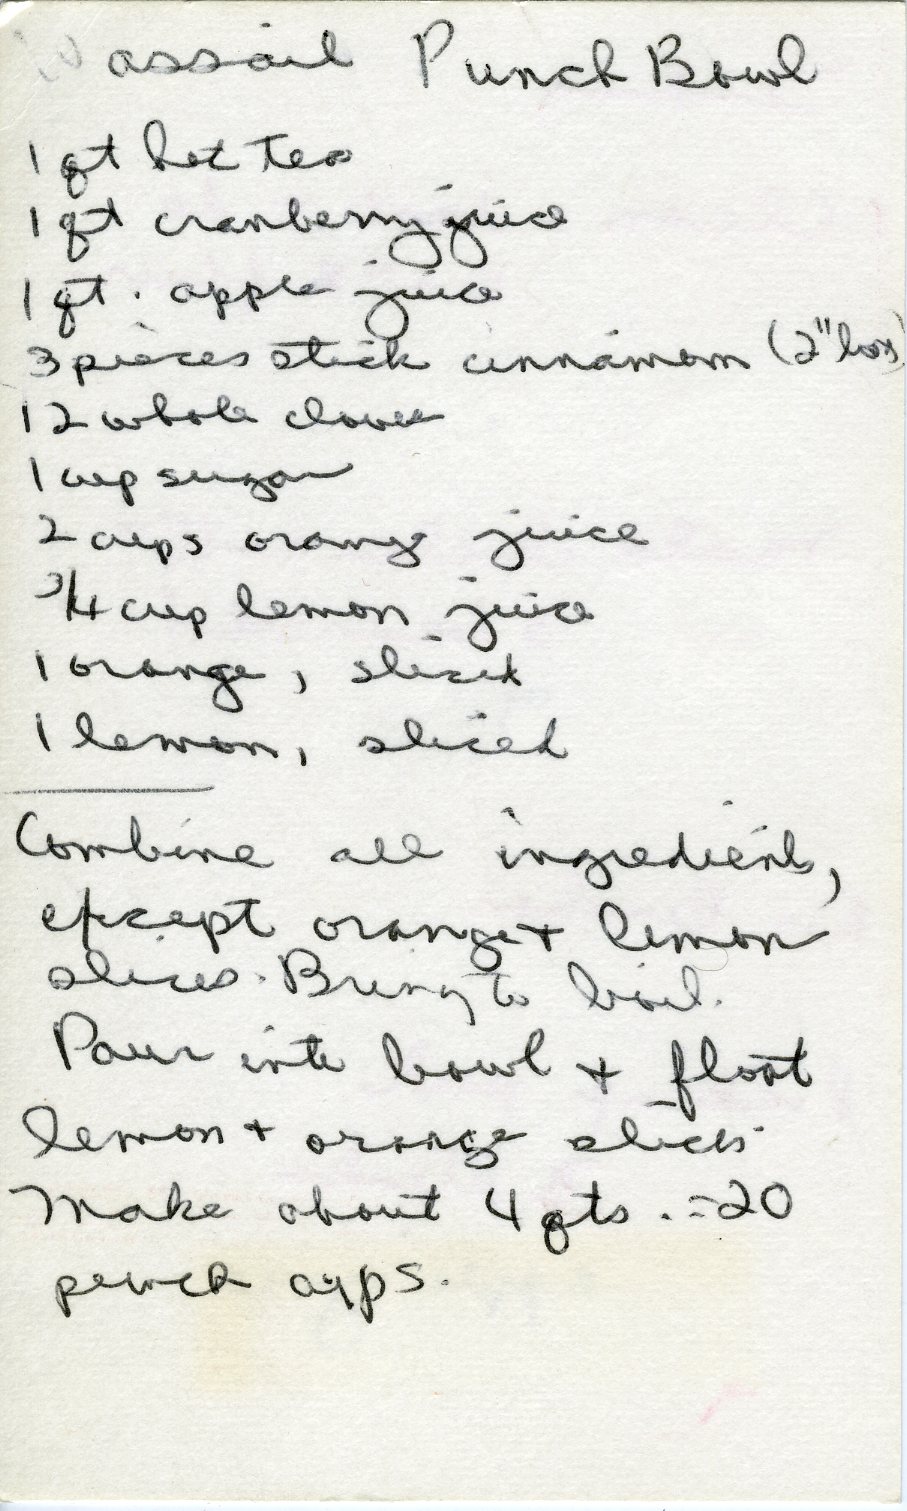 Wassail Punch Bowl
1 qt hot Tea
1 qt cranberry juice
1 qt. apple juice
3 pieces stick cinnamom (2"
12 whole cloves
1 cup sugar
2 cups orange juice
3/4 cup lemon juice
1 orange, sliced
1 lemon, sliced
Combine all ingredients,
except orange + lemon
slices. Bring to boil.
Pour into bowl + float
lemon + orange slices.
Make about 4 qts. = 20
punch cups.